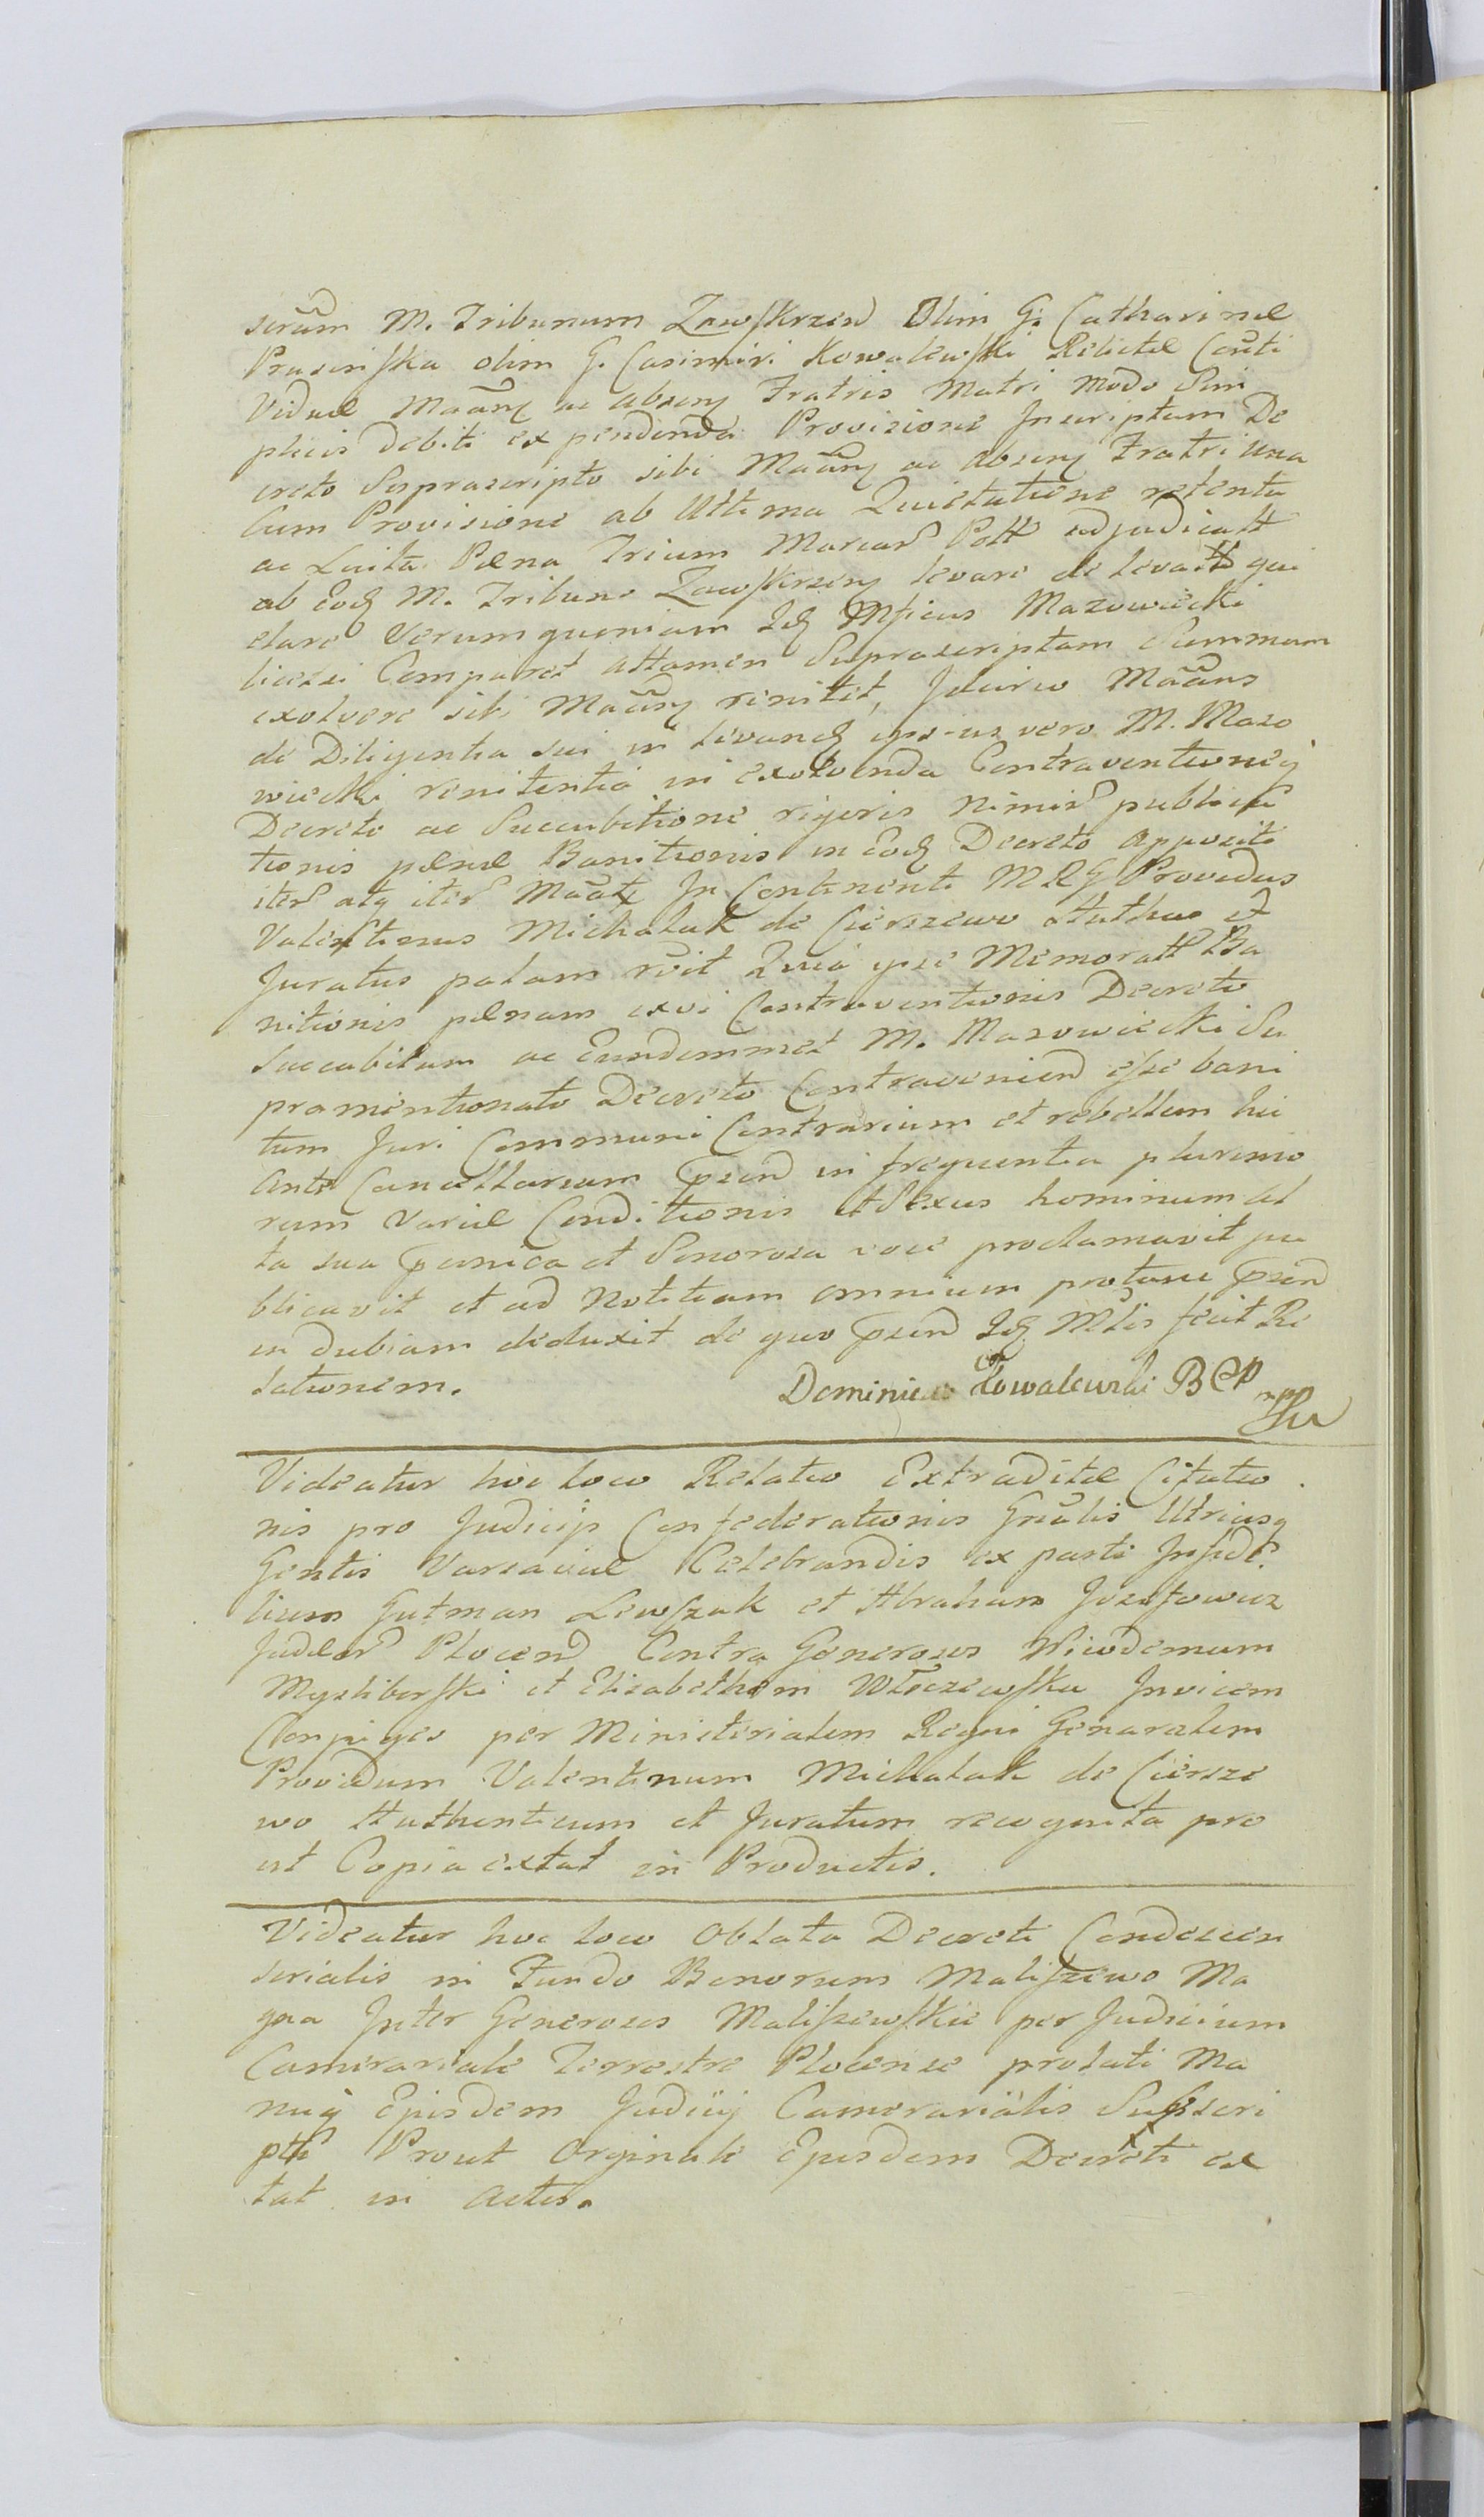 serãm M. Tribunum Zawskrzen Olim G. Catharinæ
Prasinska olim G. Casimiri Kowalewski Relictæ Conti
Viduæ Maãn ac absen Fratris Matri modo Sim
plicis debiti ex pendenda Provisione Inscriptam De
creto Suprascripto sibi Maãn ac absen Fratri una
Cum Provisione ab Ultima Quietatione retenta
ac Luita Pæna Trium Marcar Poll adjudicatt
ab Eod M. Tribuno Zawskrzen levare de levatt qui
etare Verum quoniam Id Mficus Mazowiecki
licet Comparet attamen Suprascriptam Summam
exolvere sibi Maãn renitet, Idcirco Maãns
de Diligentia sui in levand ipsius vero M. Mazo
wiecki renitentia in exolvenda Contraventioneq
Decreto ac Succubitione rigoris nimir publica
tionis pænæ Banitionis in Eod Decreto apposite
iter atq iter Maãt In Continenti MRG Providus
Valentinus Michalak de Cierszewo Authus et
Juratus palam rõit Quia ipse Memoratt Ba
nitionis pænam exvi Contraventionis Decreto
Succubitam ac Eundemmet M. Mazowiecki Su
pramentionato Decreto Contravenien esse bani
tum Juri Communi Contrarium et rebellem hic
ante Cancellariam psen in frequentia plurimo
rum Variæ Conditionis et Sexus hominum al
ta sua penica et Sonorosa voce proclamavit pu
blicavit et ad Notitiam omnium protunc psen
in dubiam deduxit de quo psen Id Mlis fecit Re
lationem.
Dominicus Kowalewski
Videatur hoc loco Relatio Extraditæ Citatio
nis pro Judicijs Confederationis Gnãlis Utriusq
Gentis Varsaviæ Celebrandis ex parte Infide
lium Gutman Lewszak et Abraham Jozefowicz
Judæor Plocen Contra Generosos Nicodemum
Mysliborski et Elisabetham Włoczewska Invicem
Conjuges per Ministerialem Regni Generalem
Providum Valentinum Michalak de Ciersze
wo Authenticum et Juratum recognita pro
ut Copia extat in Productis.
Videatur hoc loco Oblata Decreti Condescen
sorialis in Fundo Bonorum Maliszewo Ma
gna Inter Generosos Maliszewskie per Judicium
Camerariale Terrestre Plocense prolati Ma
nuq Ejusdem Judicij Camerarialis Subscri
pti Prout Orginale Ejusdem Decreti ex
tat in Actis.